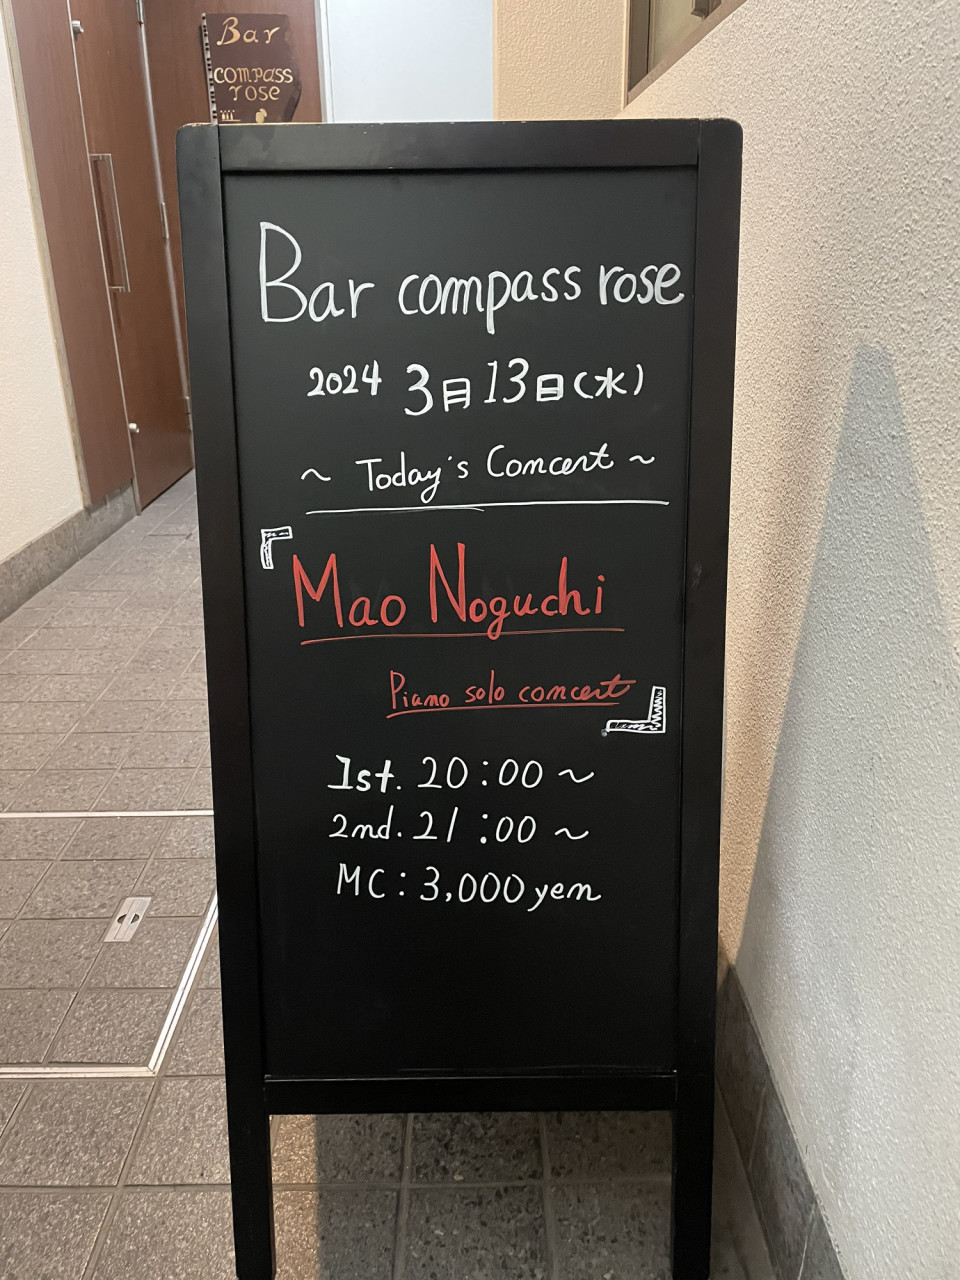 Bar
compass
rose
Bar compass rose
2024 3月13日(水)
~ Today's Concert ~
「Mao Noguchi
Piano solo concert」
1st. 20:00 ~
2nd. 21:00 ~
MC: 3,000 yen